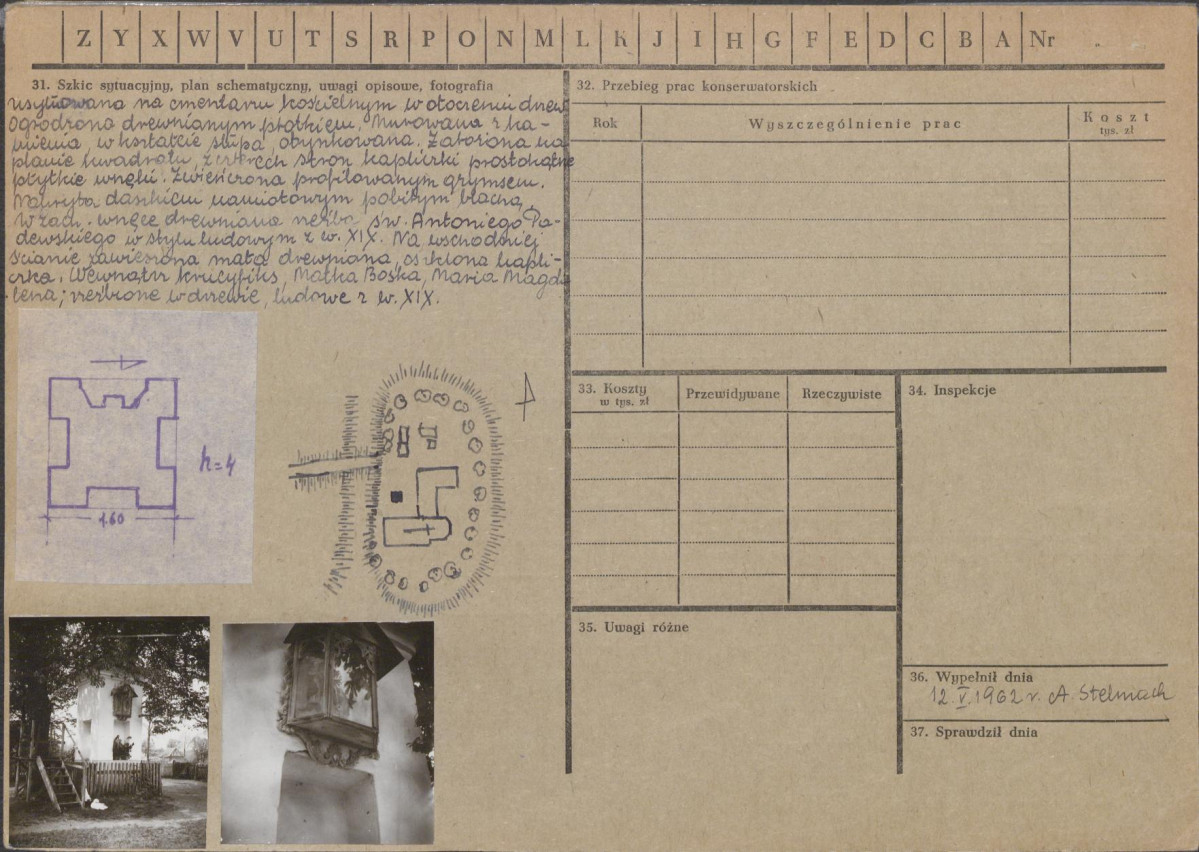 Z Y X W V U T S R P O N M L K J I H G F E D C B A Nr
31. Szkic sytuacyjny, plan schematyczny, uwagi opisowe, fotografia
usytuowana na cmentarzu kościelnym w otoczeniu drzew
Ogrodzona drewnianym płotkiem. Murowana z ka-
mienia, w kształcie słupa, otynkowana. Założona na
planie kwadratu, z czterech stron kapliczki prostokątne
płytkie wnęki. Zwieńczona profilowanym gzymsem.
Nakryta daszkiem namiotowym pobitym blachą,
W zach. wnęce drewniana rzeźba św. Antoniego Pa-
dewskiego w stylu ludowym z w. XIX. Na wschodniej
ścianie zawieszona mała drewniana, oszklona kapli-
czka. Wewnątrz krucyfiks, Matka Boska, Maria Magda
lena; rzeźbione w drzewie, ludowe z w. XIX.
h=4
1.60
32. Przebieg prac konserwatorskich
Rok
Wyszczególnienie prac
Koszt
tys. zł
33. Koszty
w tys. zł
Przewidywane
Rzeczywiste
34. Inspekcje
35. Uwagi różne
36. Wypełnił dnia
12.V.1962 r. A. Stelmach
37. Sprawdził dnia